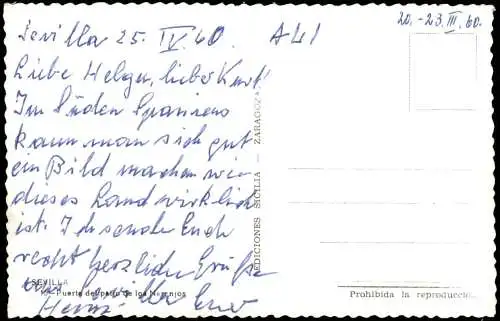 Sevilla 25. IV. 60.
20. - 23. III. 60.
Liebe Helga, lieber Kurt!
Im Süden Spaniens
kann man sich gut
ein Bild machen wie
dieses Land wirklich
ist. Ich sende Euch
recht herzliche Grüße
aus Sevilla Euer
Heinz
SEVILLA
Puerta del patio de los Naranjos
EDICIONES SICILIA - ZARAGOZA
Prohibida la reproducción